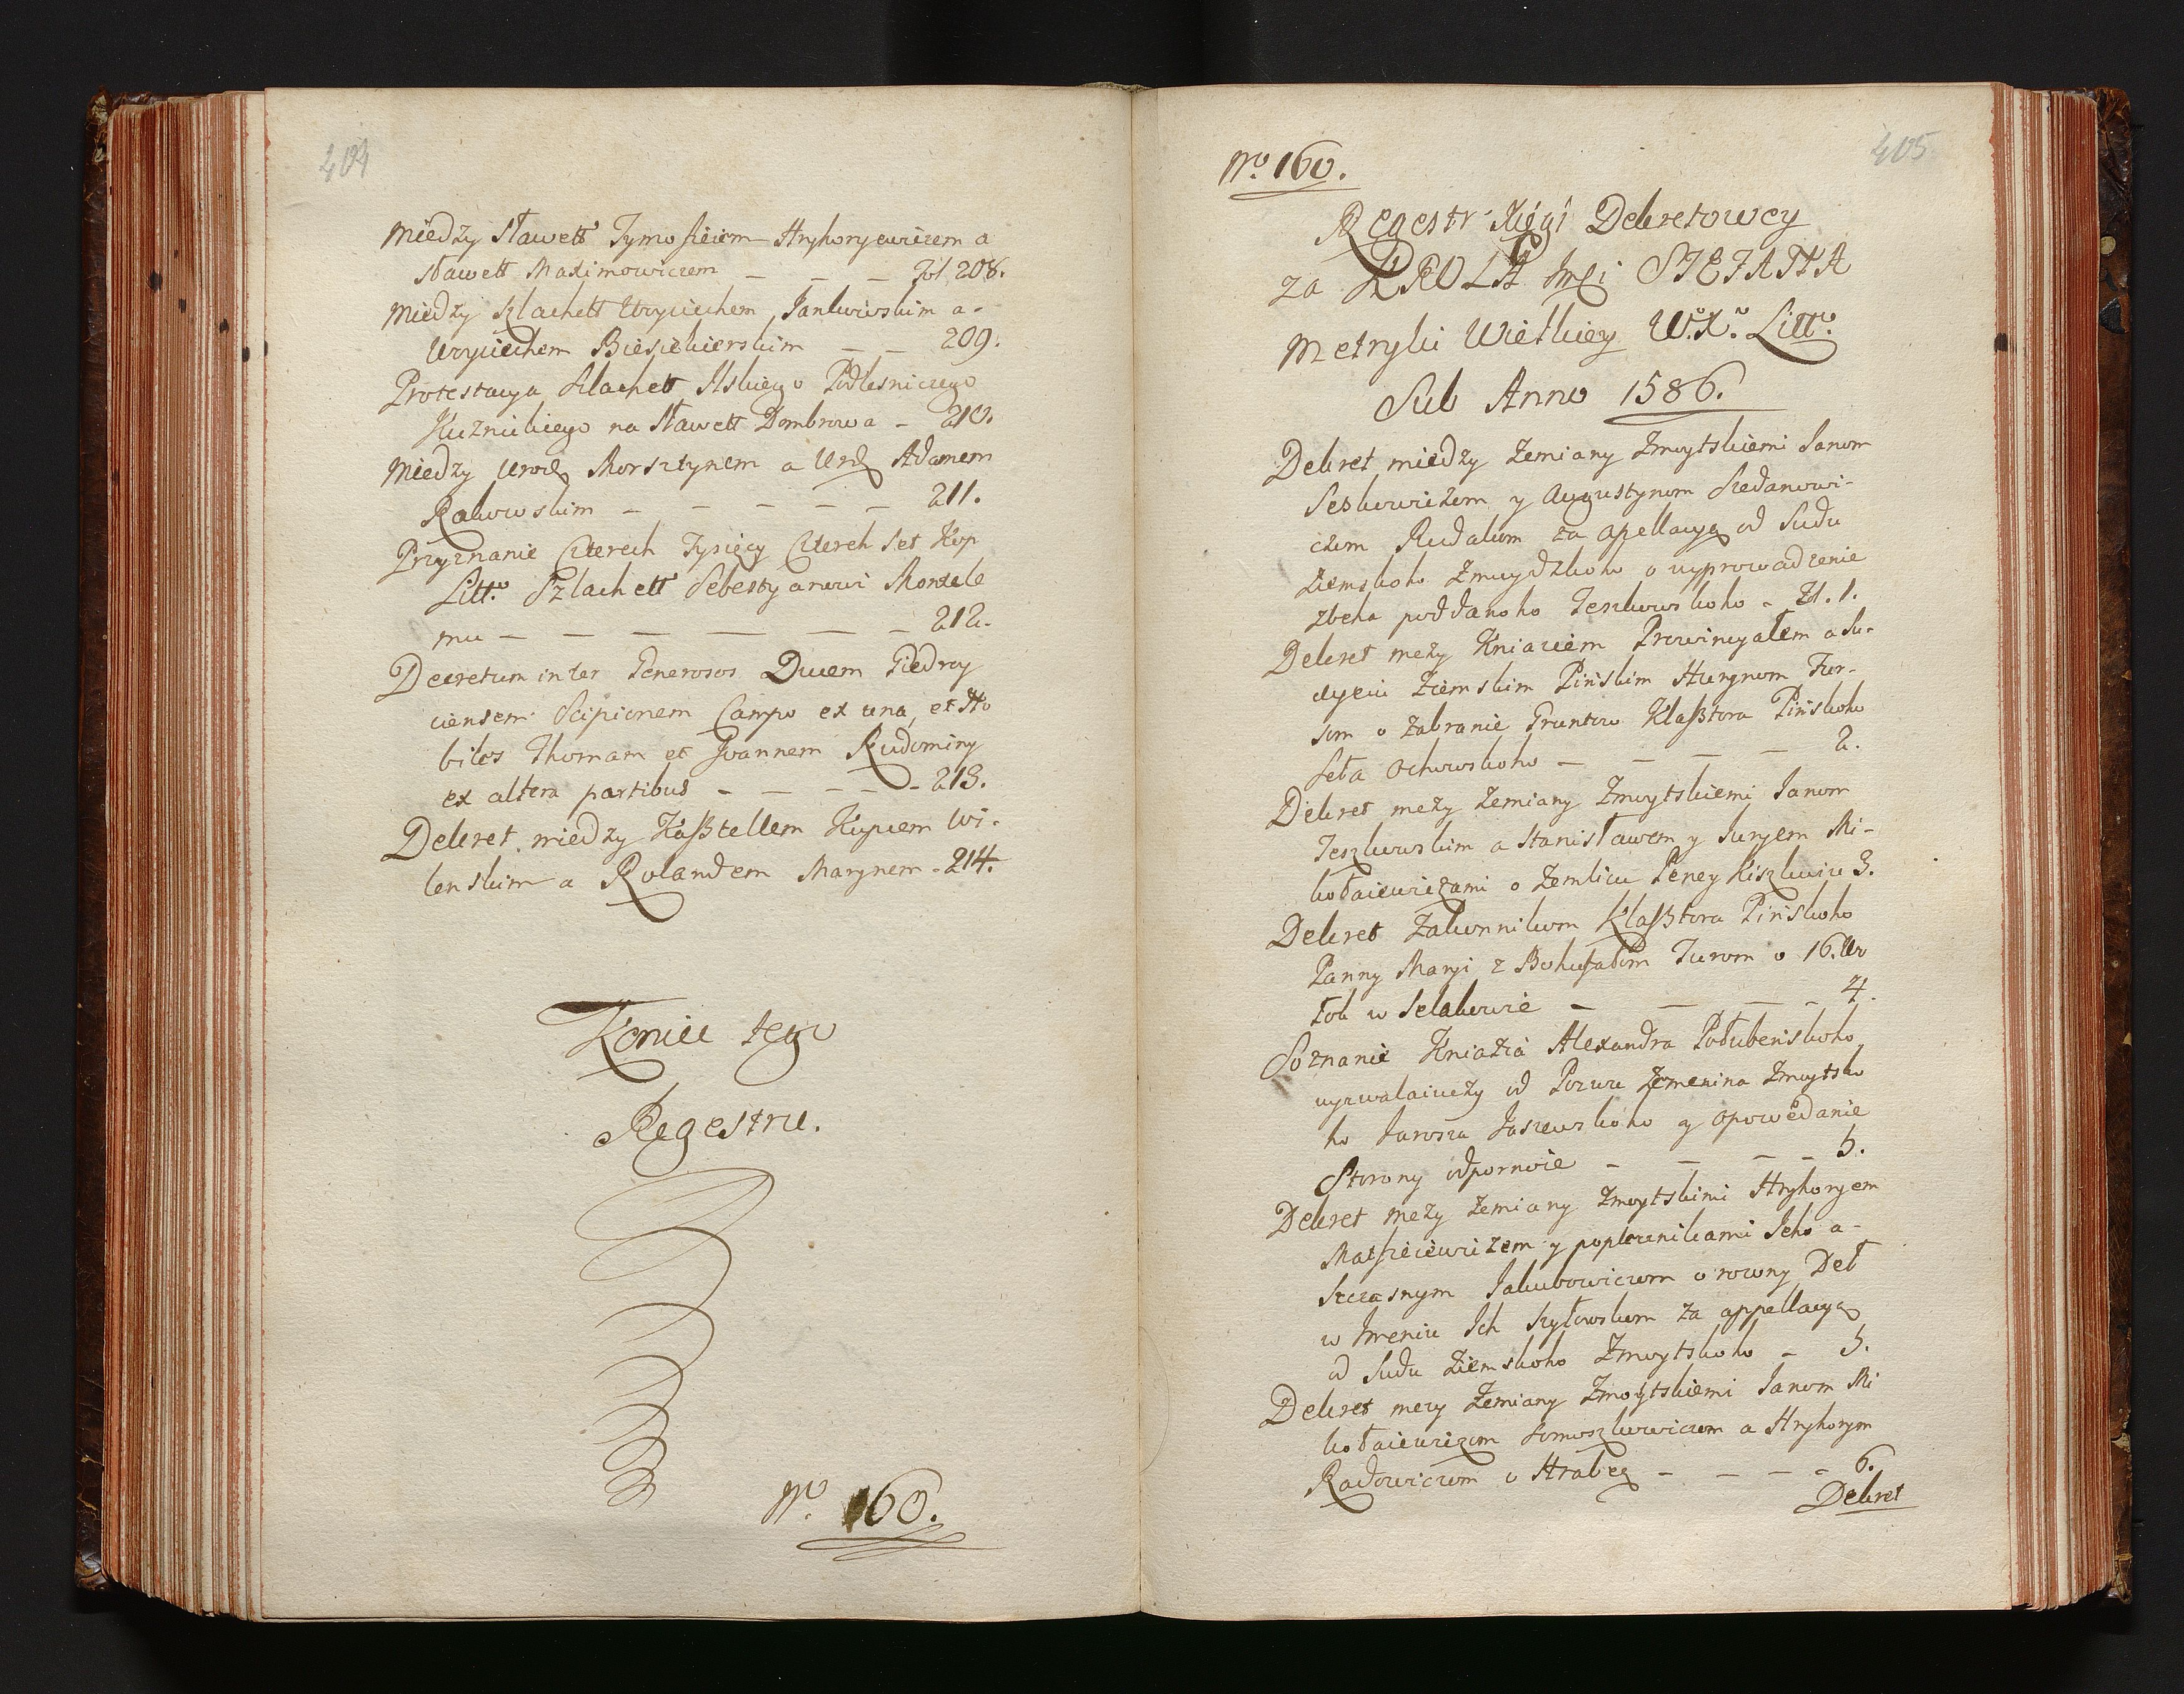 404
Między Sławett Tymofieiem Hryhoryewiczem a
sławett Maximowiczem — — — Fol. 208.
Między Szlachett Woyciechem Jankowskim a-
Woyciechem Biesiekierskim — — 209.
Protestacya Szlachett Ilskiego Podlesniczego
Kuznickiego na Sławett Dombrowa - 210.
Między Urodz Morsztynem a Urdz Adamem
Rakowskim — — — — — 211.
Przyznanie Czterech Tysięcy Czterech Set Kop
Litto. Szlachett Sebestyanowi Monzele
mu — — — — — — 212.
Decretum inter Generosos Ducem Giedroy
ciensem Scipionem Campo ex una, et No
biles Thomam et Joannem Rudominy
ex altera partibus - — — - - 213.
Dekret między Kaßtellem Kupcem Wi-
lenskim a Rolandem Marynem - 214.
Koniec tego
Regestru.
No. 160.
405
No. 160.
Regestr Xięgi Dekretowey
za KROLA Jmci STEFANA
Metryki Wielkiey W. X. Litto.
Sub Anno 1586.
Dekret między Zemiany Zmoytskiemi Janom
Leskowiczem y Augustynom Szedanowi-
czem Rudakom za apellacyą od Sudu
Ziemskoho Zmuydzkoho o wyprowadzenie
zbeha poddanoho Jeszkowskoho - Fl. 1.
Dekret mezy Kniaziem Prowincyałem a Su-
dyeiu Ziemskim Pińskim Hurynom Fur-
som o zabranie Gruntow Klaßtora Pińskoho
Seła Ochowskoho — — — — 2.
Dekret mezy Zemiany Zmoytskiemi Janom
Jeszkowskim a Stanisławem y Juryem Mi-
kołaiewiczami o Zemlicu Peney Kiszkuiu 3.
Dekret Zakonnikom Klaßtora Pińskoho
Panny Maryi z Bohußakom Turom o 16. Wo
łok w Selakowie — — — - 4.
Soznanie Kniazia Alexandra Połubenskoho
wyzwalaiuczy od Pozwu Zemenina Zmoytsko
ho Jarosza Jaszewskoho y opowedanie
Storony odpornoie - — — - 5.
Dekret mezy Zemiany Zmoytskimi Hryhoryem
Matfieiewiczem y poplecznikami Jeho a-
Szczasnym Jakubowiczom o rowny Deł
w Imeniu Ich Szyłowskom za appellacyą
od Sudu Ziemskoho Zmoytskoho - 5.
Dekret mezy Zemiany Zmoytskiemi Janom Mi
kołaiewiczom Somoszkowiczom a Hryhorym
Radowiczom o Hrabez - — — - 6.
Dekret